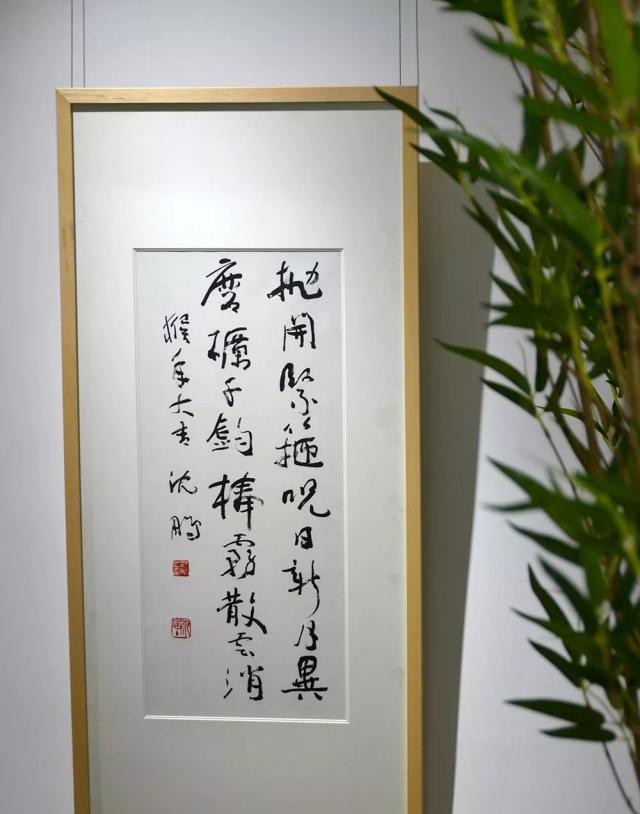 抛開緊箍呪日新月異
磨礪千鈞棒霧散雲消
猴年大吉 沈鵬